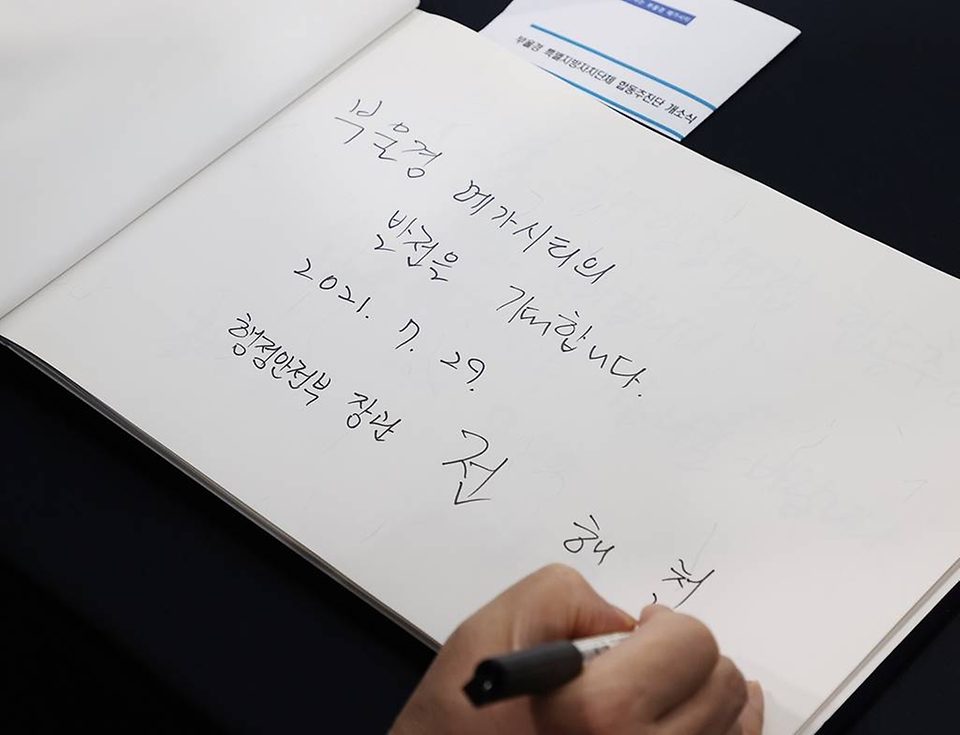 부울경 특별지방자치단체 합동추진단 개소식
부울경 메가시티의
발전을 기대합니다.
2021. 7. 29.
행정안전부 장관 전 해